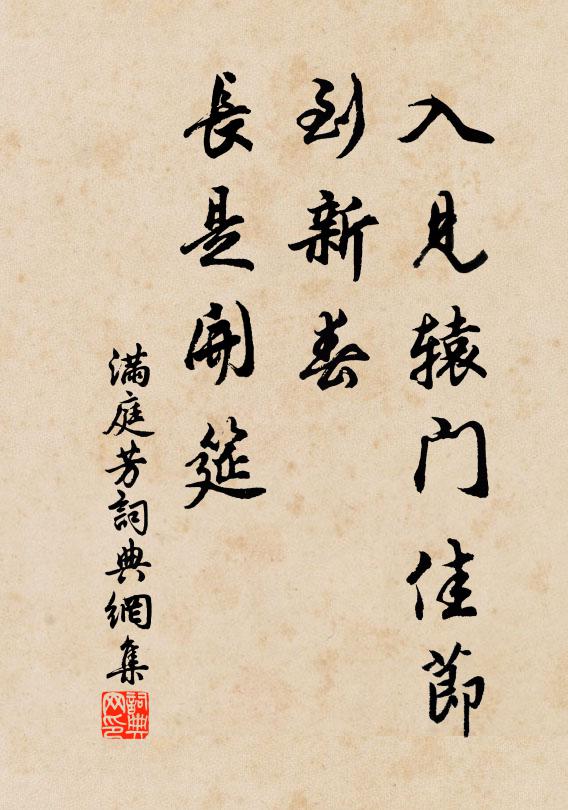 入見辕门佳節
到新春
長是開筵
满庭芳詞典網集
詞典网印